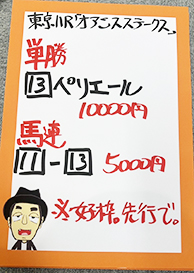 東京11R「オアシスステークス」
単勝
13 ペリエール
10000円
馬連
11-13 5000円
※好枠。先行で。